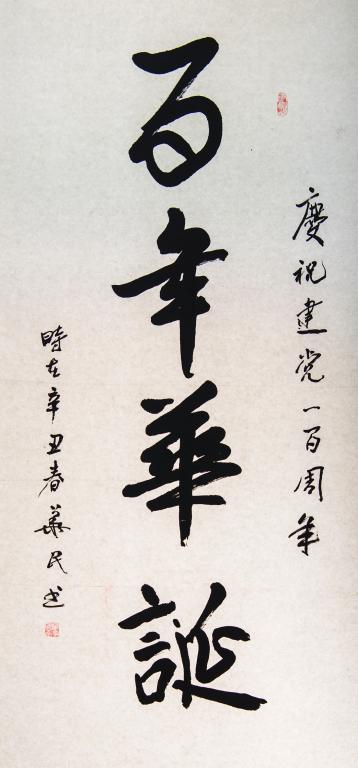 慶祝建党一百周年
百年華誕
時在辛丑春華民书